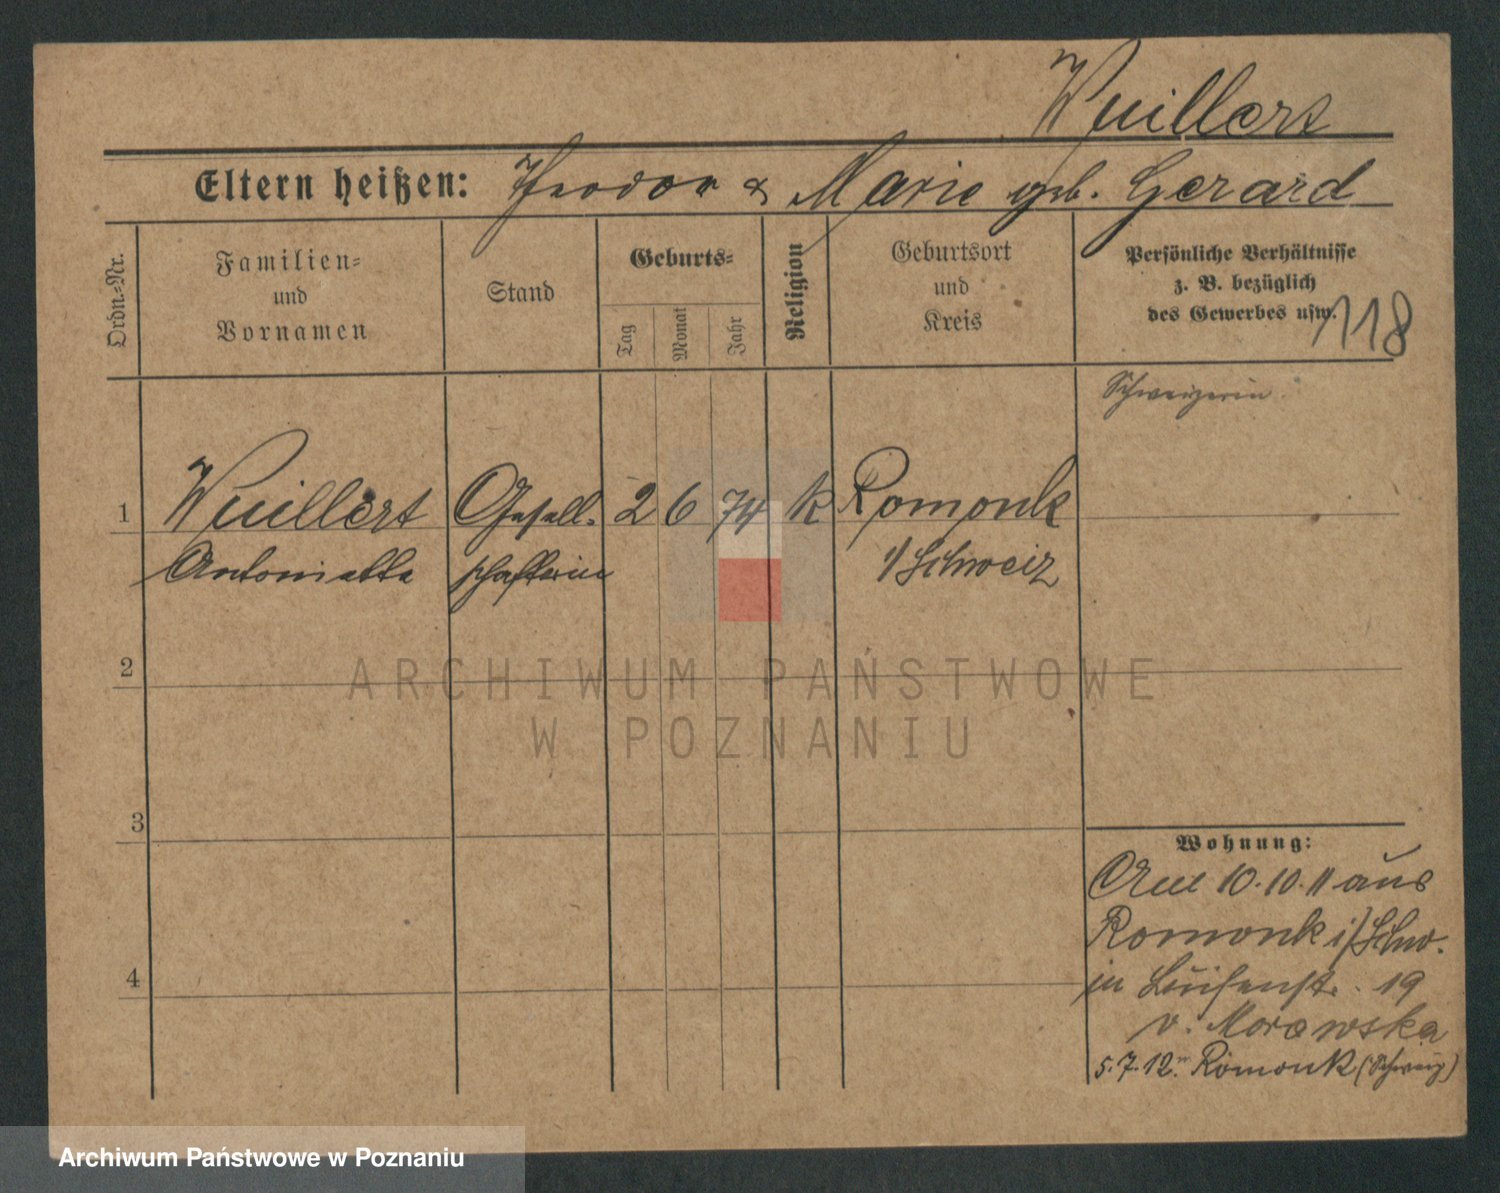 Wuillert
Eltern heißen: Theodor & Marie geb. Gerard
Ordn.-Nr.
Familien-
und
Vornamen
Stand
Geburts-
Tag
Monat
Jahr
Religion
Geburtsort
und
Kreis
Persönliche Verhältnisse
z. B. bezüglich
des Gewerbes usw.
118
Schweizerin
1 Wuillert Gesell- 2 6 74 k Romonk
Antonietta schafterin i/Schweiz
2
ARCHIWUM PAŃSTWOWE
W POZNANIU
3
4
Wohnung:
Am 10.10.11 aus
Romonk i/Schw.
in Luisenstr. 19
v. Morawska
5.7.12 n. Romonk (Schweiz)
Archiwum Państwowe w Poznaniu